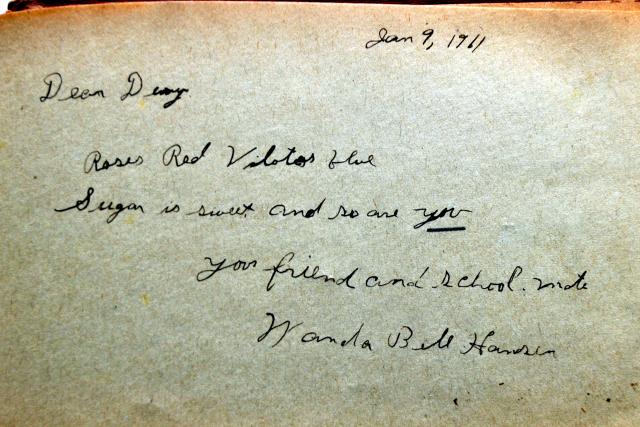 Jan 9, 1911
Dear Dewy
Roses Red Vilotos blue
Sugar is sweet and so are you
your friend and school. mate
Wanda Bell Hansen